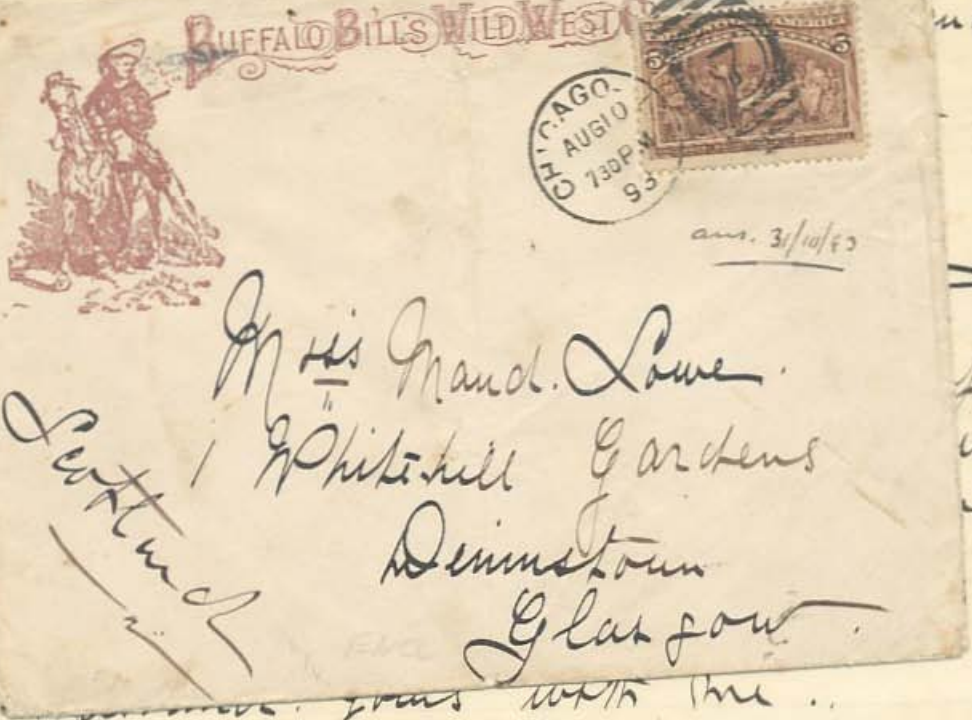 BUFFALO BILL'S WILD WEST
CHICAGO.
AUG 10
730 P.M
93
5 5
ans. 31/10/93
Miss Maud. Lowe.
1 Whitehill Gardens
Dennistoun
Glasgow.
Scotland
yours with me ..